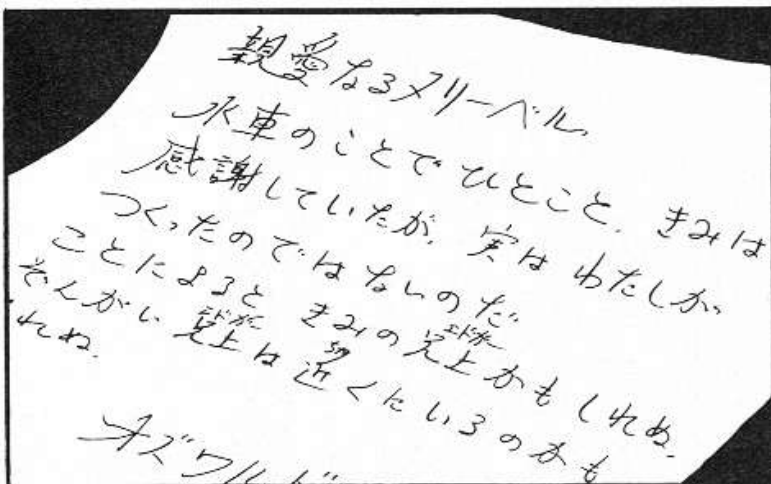 親愛なるメリーベル、
水車のことでひとこと、きみは
感謝していたが、実はわたしが
つくったのではないのだ
ことによるときみの兄上かもしれぬ、
エドガー
ぞんがい兄上は近くにいるのかも
エドガー
れぬ、
オズワルド